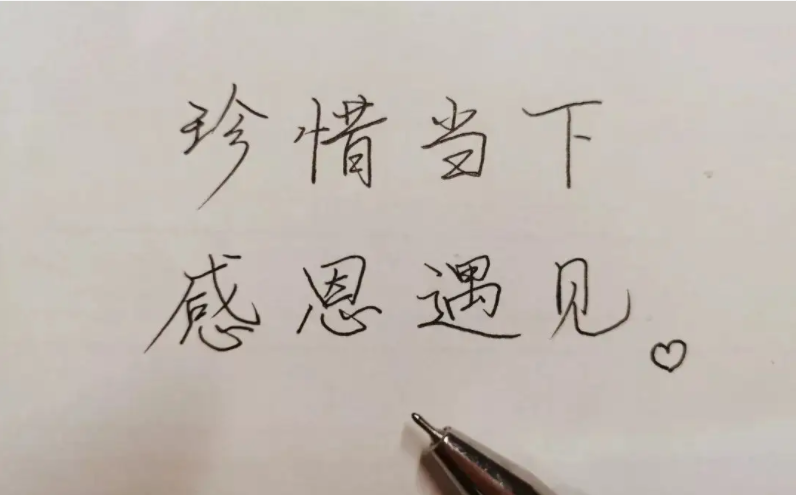 珍惜当下
感恩遇见